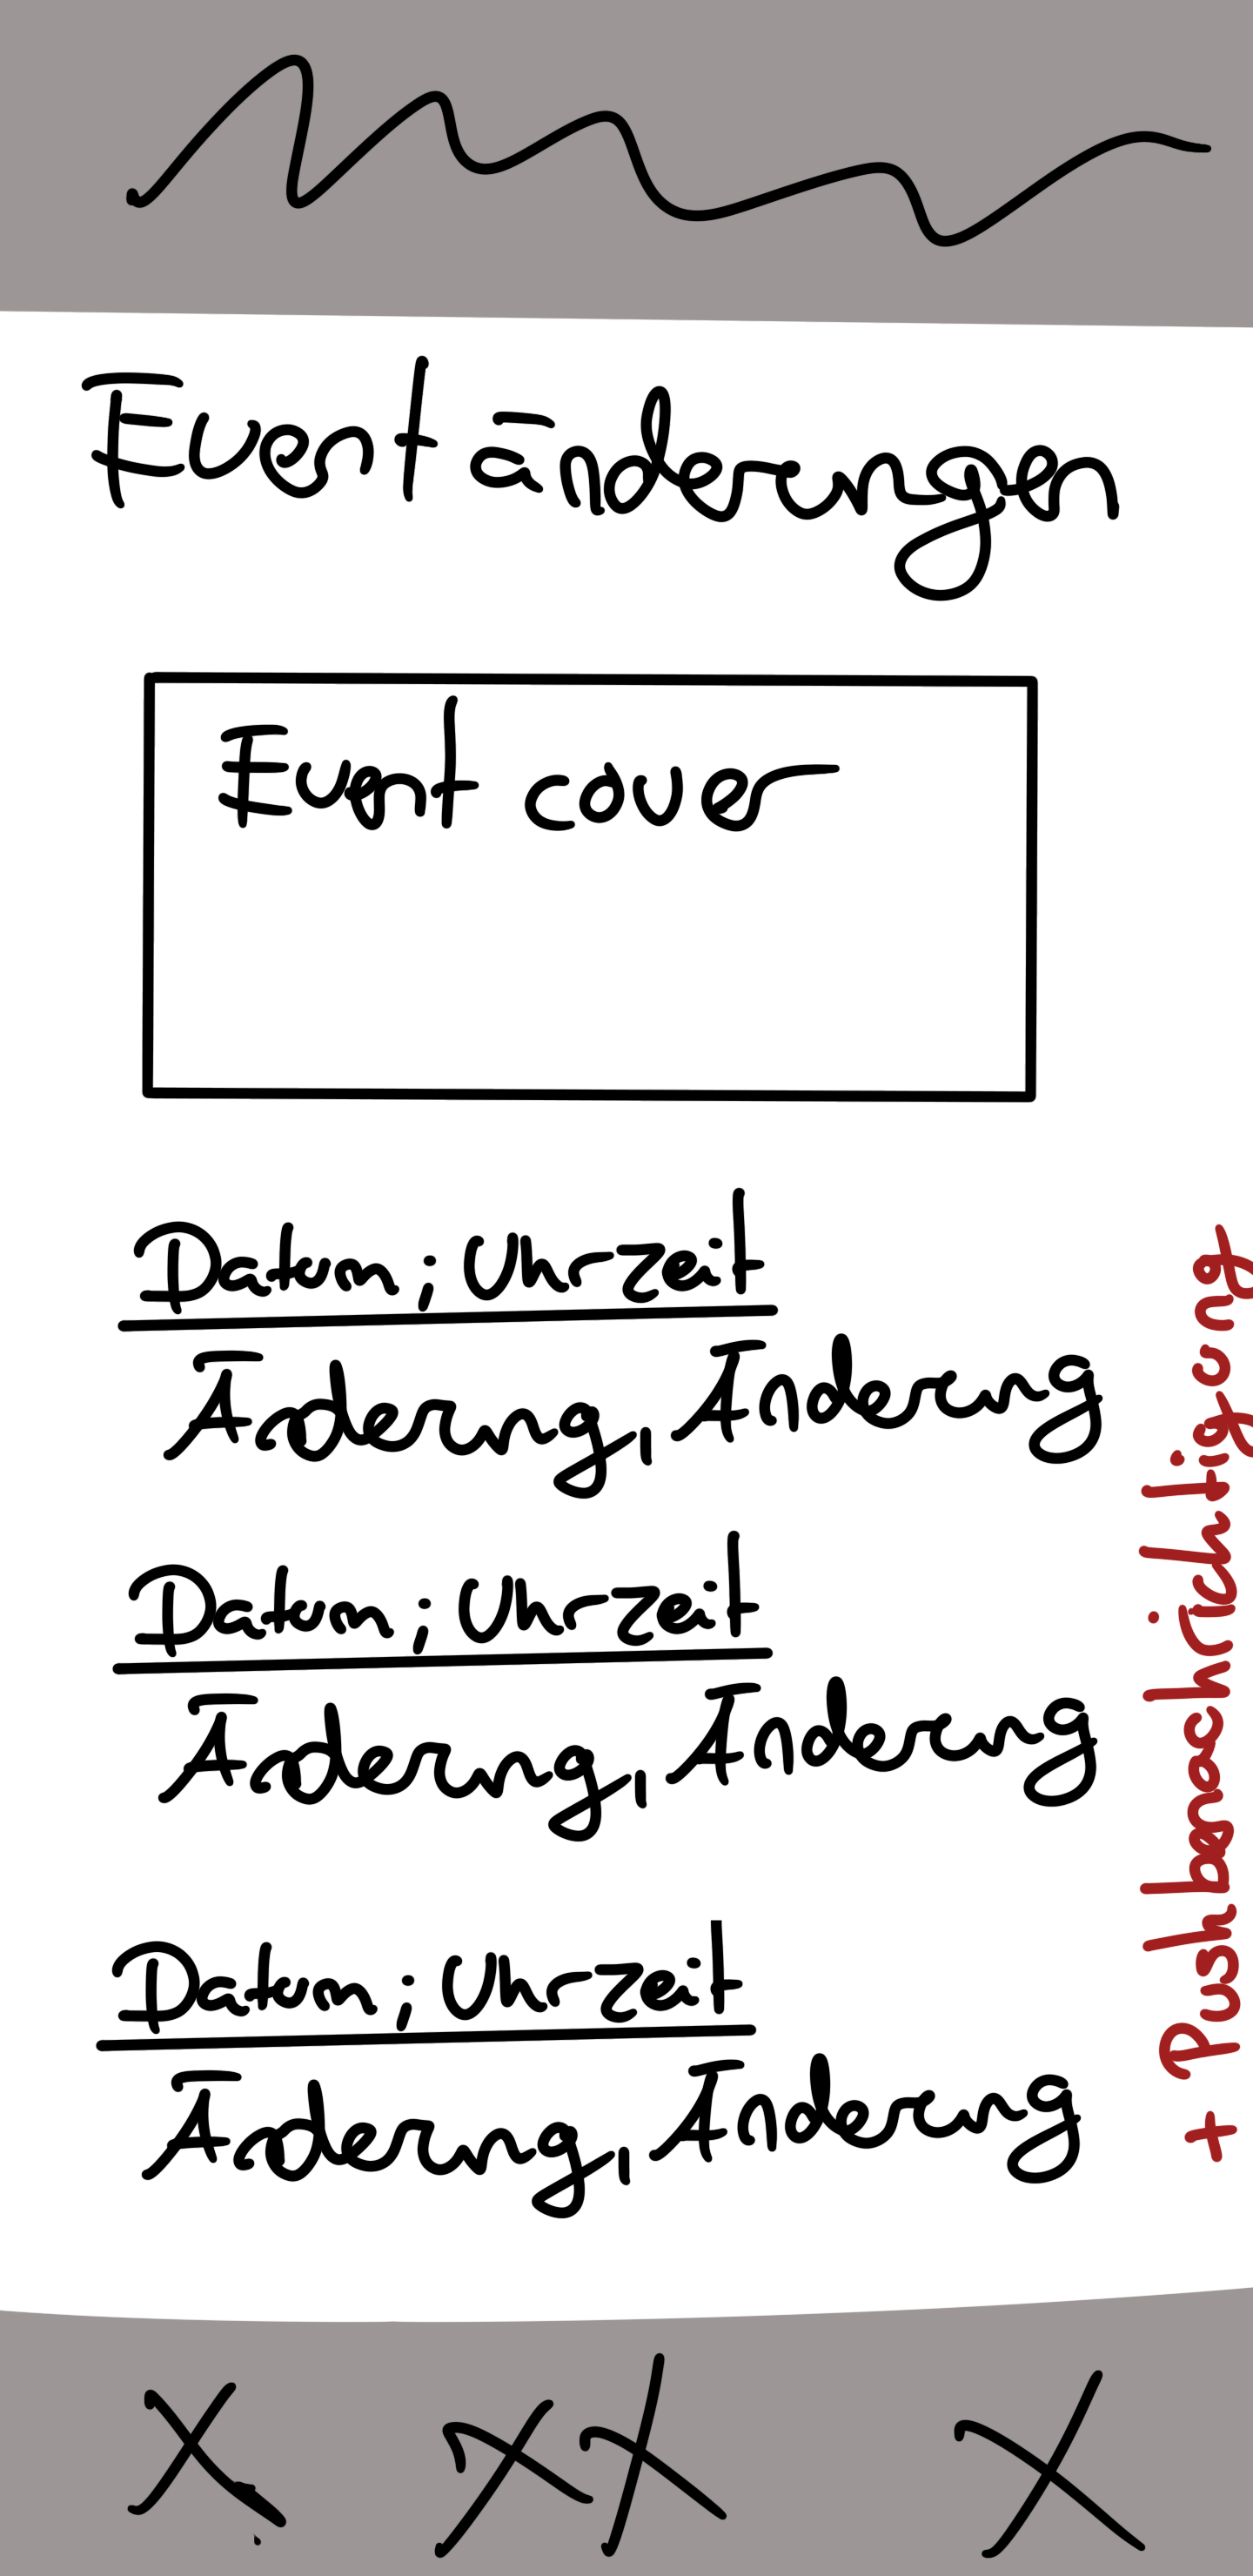 Event änderungen
Event cover
Datum ; Uhrzeit
Änderung, Änderung
Datum ; Uhrzeit
Änderung, Änderung
Datum ; Uhrzeit
Änderung, Änderung
+ Pushbenachrichtigung